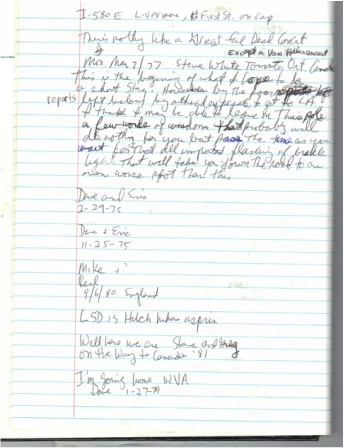 I-580 E Livermore, & First St. on ramp
There's nothing like a Greatful Dead Concert
except a Van Halen concert
Mon. May 2/77 Steve White Toronto, Ont. Canada
This is the beginning of what I hope to be
a short stay. However by the
reports left by other people to get to LA
I think I may be able to leave
a few words of wisdom that probably will
do nothing for you but pass the time as you
wait for that all important flashing of brake
lights that will take you down the road to an
even worse spot then this
Dave and Eric
2-29-75
Dave & Eric
11-25-75
Mike + ?
Paul
9/6/80 England
LSD is Hitch hikers asprin
Well here we are Steve and Greg
on the Way to Canada '81
I'm going home WVA
Dave 1-27-79